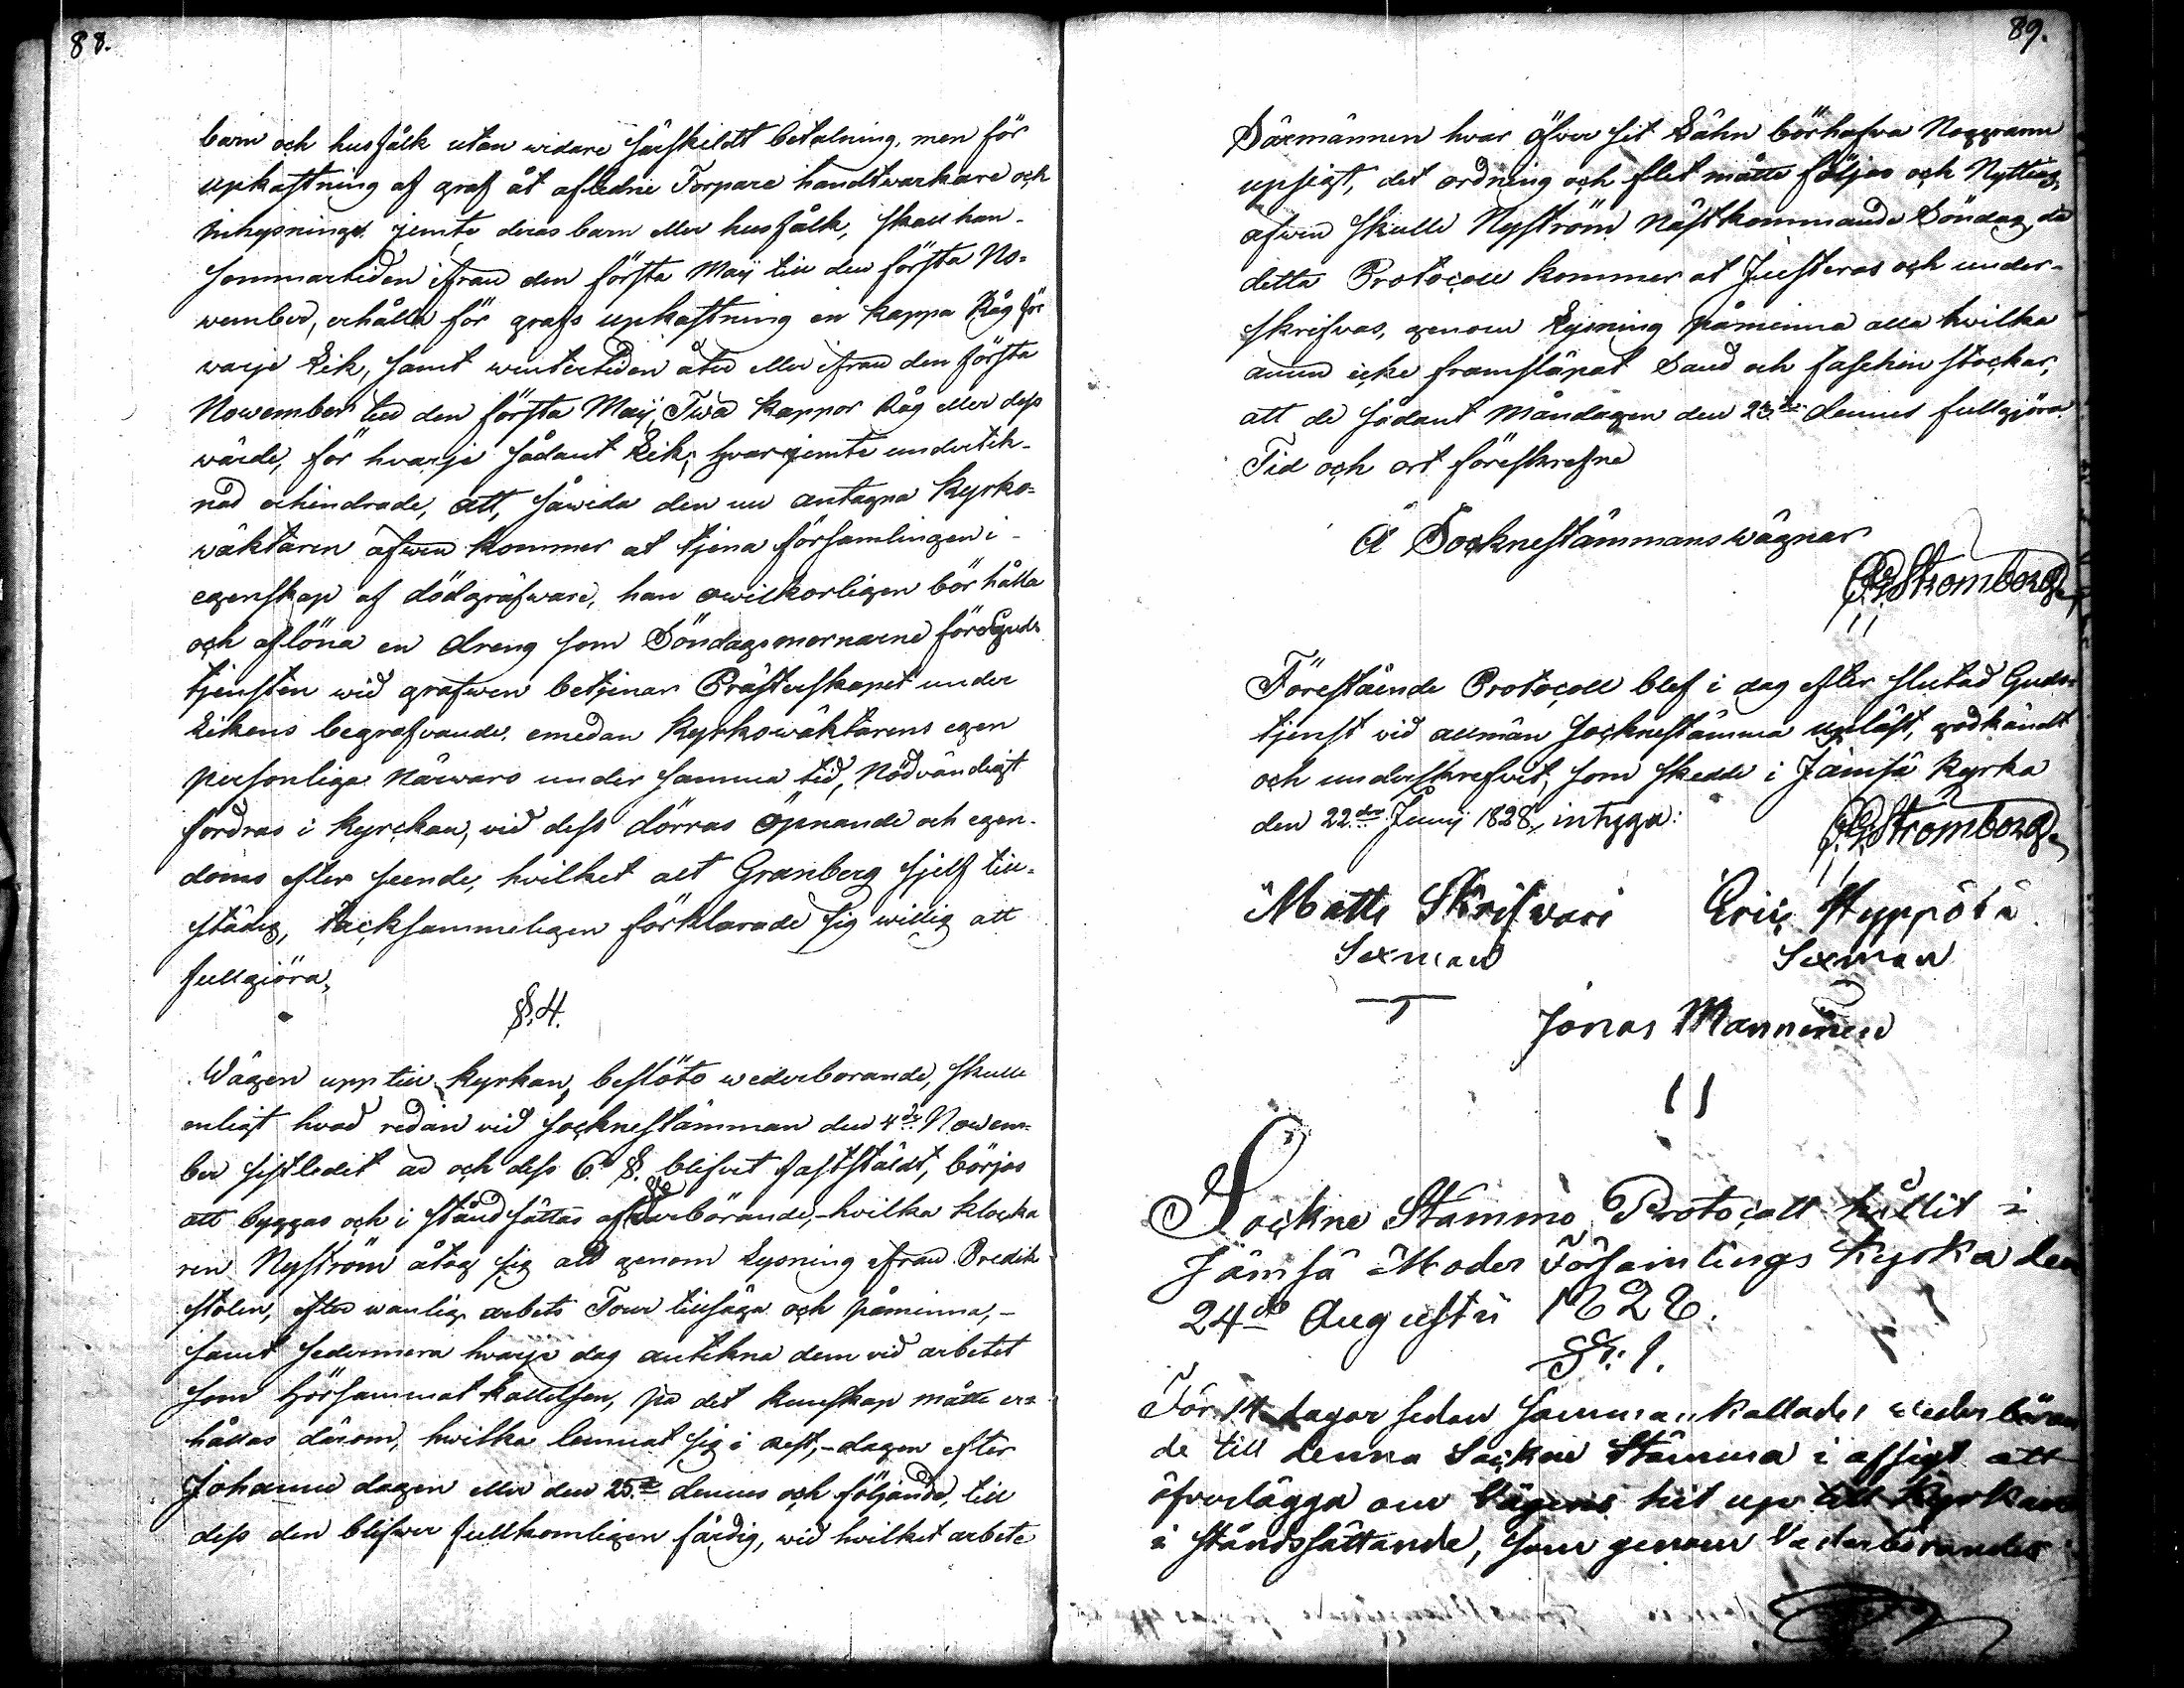 88.
barn och husfålk utan widare särskildt betalning, men för
upkastning af graf åt aflidne Torpare handtwarkare och
Inhysningz jemte deras barn eller husfålk, skall han
sommartiden ifran den första Maij till den första No=
wember, erhålla för grafs upkastning en kappa Råg för
warje Lik, samt wintertiden åter eller ifran den första
November till den första Maij, Twå kappor Råg eller dess
wärde, för hvarje sådant Lik; hvarjemte undertek-
nad erhindrade, att, såwida den nu antagna Kyrko=
wäktaren äfwen kommer at tjena församlingen i
egenskap af dödgräfware, han owilkorligen bör hålla
och aflöna en dreng som Söndagsmornarne före Guds
tjensten wid grafwen betjenar Prästerskapet under
Likens begrafvande, emedan Kyrkowäktarens egen
personliga närwaro under samma tid, Nödvändigt
fordras i Kyrckan, vid dess dörras öpnande och egen-
doms efter seende, hvilket alt Granberg sjelf till=
städes, tacksammeligen förklarade sig willig att
fullgiöra,
§. 4.
Wägen upp till Kyrkan, beslöto wederborande, skulle
enligt hvad redan vid socknestämman den 4de Novem=
ber sistledit ar och dess 6te §. blifvit faststäldt, börjas
att byggas och i ståndsättas af wederbörande, hvilka klocka
ren Nyström åtog sig att genom Lysning ifran Predik
stolen, efter wanlig arbets Tour tillsäga och påminna,
samt sedermera hvarje dag antekna dem vid arbetet
som hörsammat kallelsen, pa det kunskap måtte er-
hållas därom, hwilka lemnat sig i rest, dagen efter
Johanne dagen eller den 25te dennes och följande, till
dess den blifwer fullkomligen färdig, wid hvilket arbete
89.
Säxmännen hvar öfver sit Lähn bör hafva Noggrann
upsigt, det ordning och flit måtte följas och Nyttias,
äfwen skulle Nyström Nästkommande Söndag, då
detta Protocoll kommer at Justeras och under-
skrifvas, genom Lysning påminna alla hvilka
ännu icke framsläpat Sand och faschin stockar,
att de sådant Måndagen den 23de dennes fullgjöra
Tid och ort föreskrefne
Å Socknestämmans wägnar
Stromborg
Förestående Protocoll blef i dag efter slutad Guds-
tjenst vid allmän socknestämma upläst, godkändt
och underskrefvit, som skedde i Jämsä Kyrka
den 22dre Junij 1828, intyga:
Stromborg
Matts Skrifvari Eric Hyppölä
Sexman Sexman
Jonas Manninen
Sockne Stämmo Protocoll hållit i
Jämsä Moder Församlings Kyrka den
24de Augustii 1828.
§: 1.
För 14 dagar sedan sammankallades wederböran
de till denna Sockne Stämma i afsigt att
öfverlägga om Vägens hit up till Kyrkan
i ståndsättande, som genom Vederbörandes